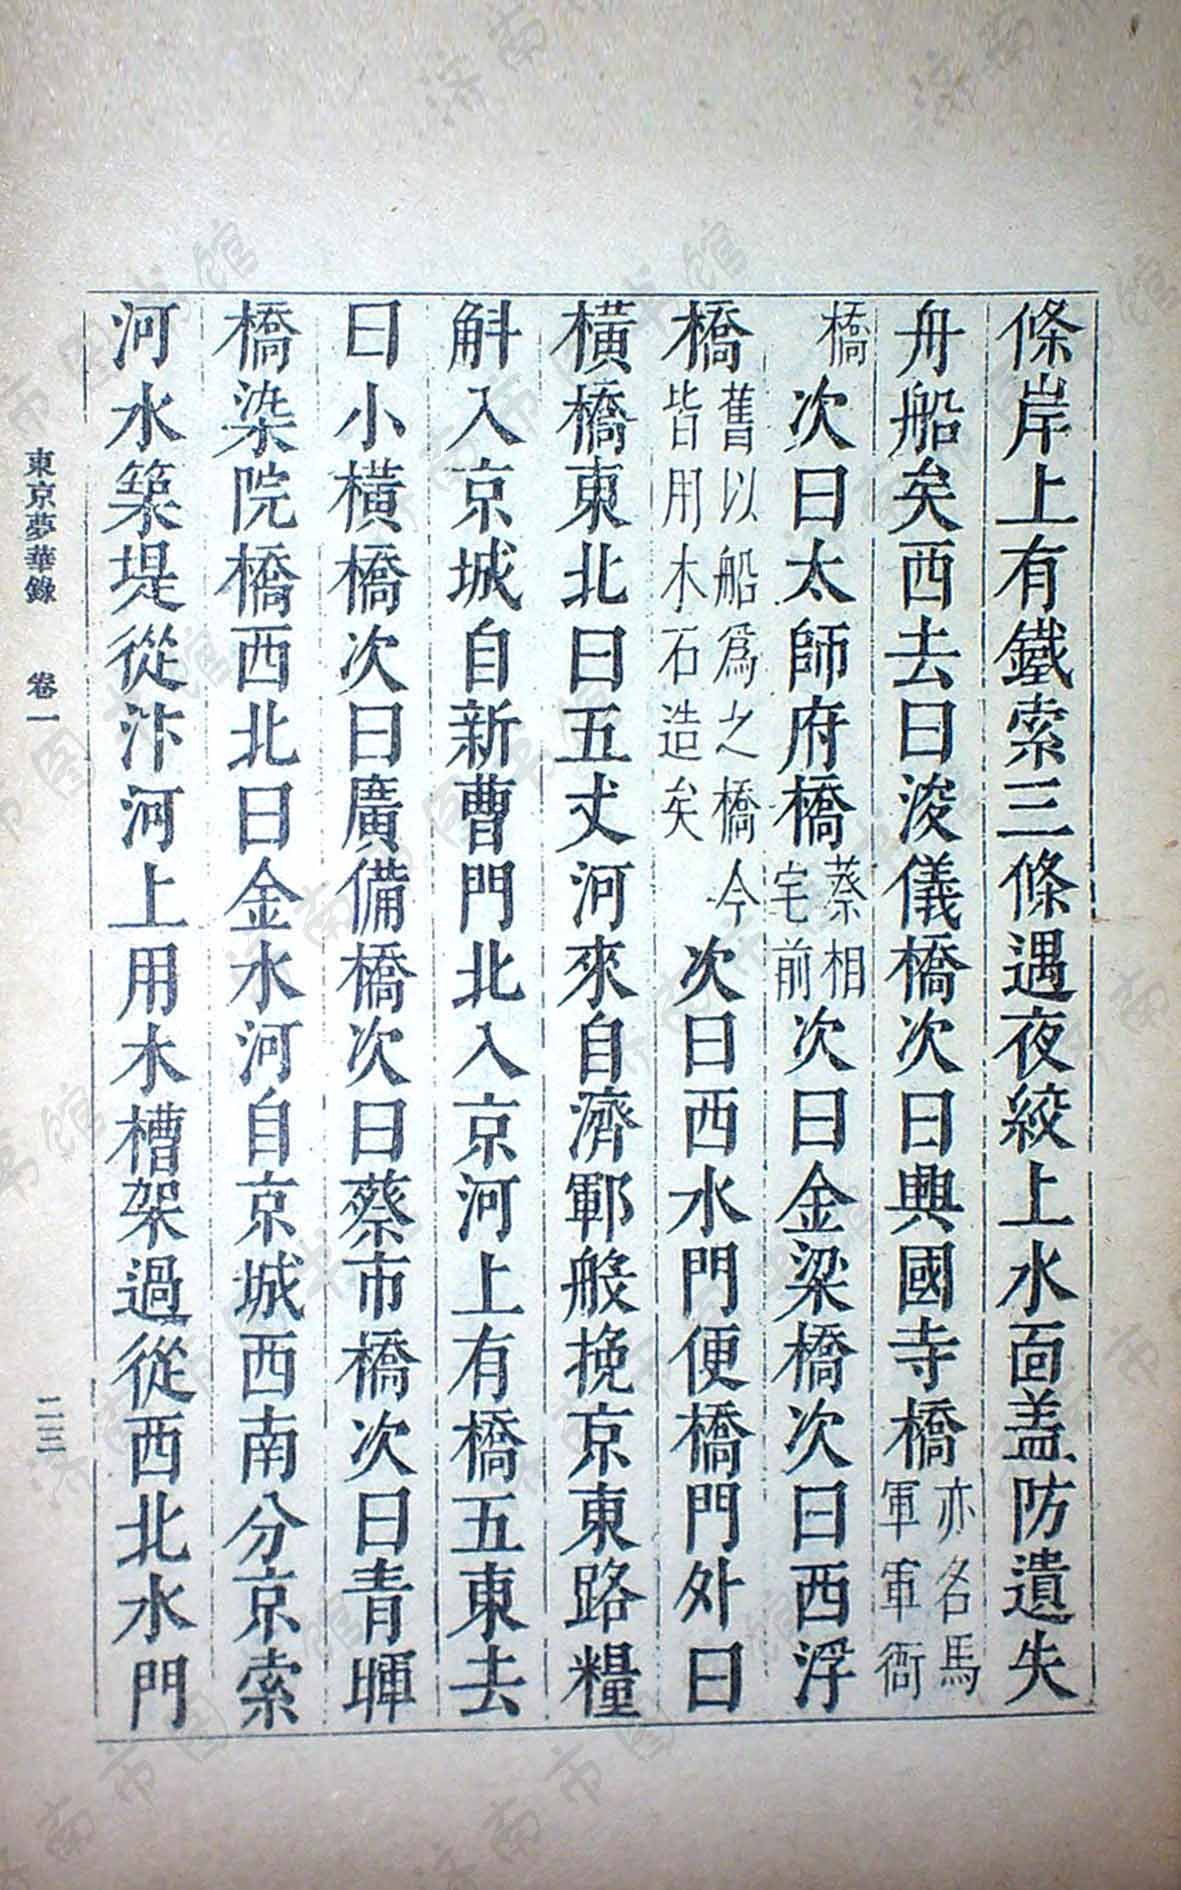 條岸上有鐵索三條遇夜絞上水面盖防遺失
舟船矣西去曰浚儀橋次曰興國寺橋亦名馬軍軍衙
橋次曰太師府橋蔡相宅前次曰金梁橋次曰西浮
橋舊以船爲之橋今皆用木石造矣次曰西水門便橋門外曰
橫橋東北曰五丈河來自濟鄆般挽京東路糧
斛入京城自新曹門北入京河上有橋五東去
曰小橫橋次曰廣備橋次曰蔡市橋次曰青暉
橋染院橋西北曰金水河自京城西南分京索
河水築堤從汴河上用木槽架過從西北水門
東京夢華錄 卷一
二三
济南市图书馆